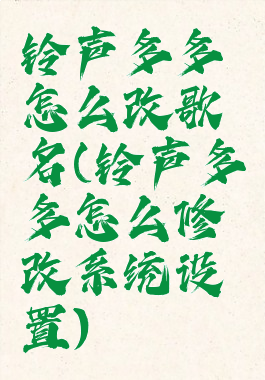 铃声多多
怎么改歌
名(铃声多
多怎么修
改系统设
置)